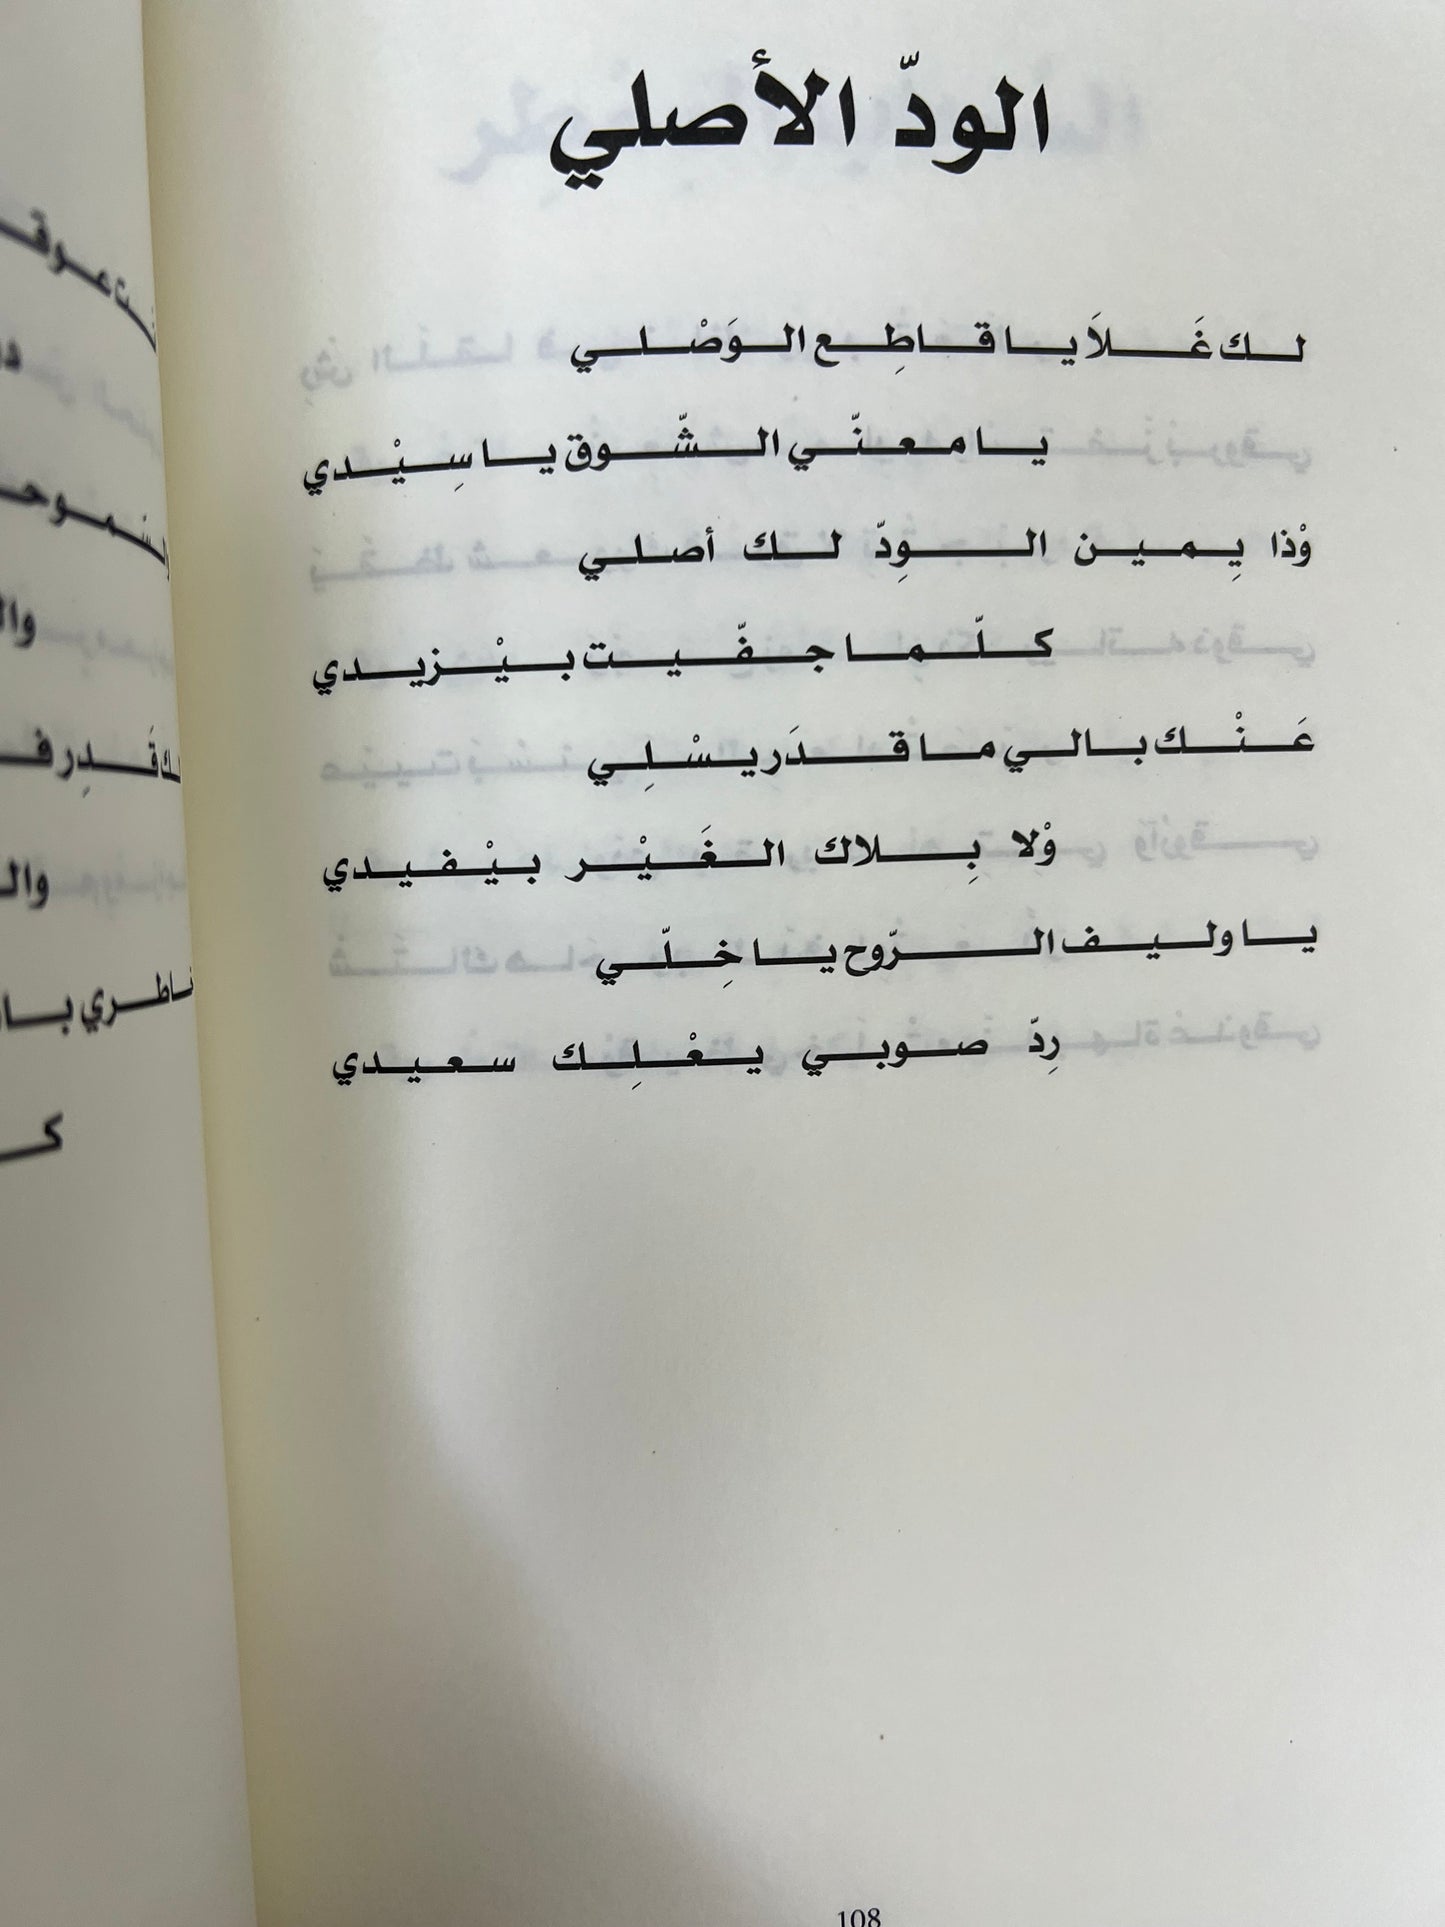 الودّ الأصلي
لك غَلاَ يا قاطِع الوَصْلي
يا معنّي الشّوق يا سِيْدي
وْذا يِمين الوِدّ لك أصلي
كلّما جفّيت بيْزيدي
عَنْك بالي ما قدَر يسْلِي
وْلا بِلاك الغَيْر بيْفيدي
يا وليف الرّوح يا خِلّي
رِدّ صوبي يعْلِك سعيدي
108